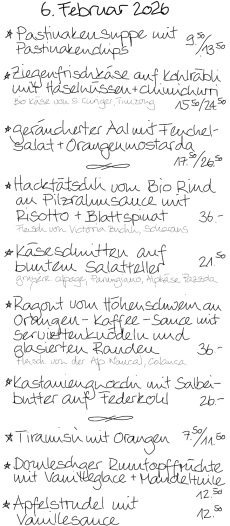 6. Februar 2026
* Pastinakensuppe mit
Pastinakenchips 9.50/13.50
* Ziegenfrischkäse auf Kohlrabli
mit Haselnüssen + Chimichurri
Bio Käse von S. 15.50/24.50
* geräucherter Aal mit Fenchel-
salat + Orangenmostarda
17.50/26.50
* Hacktätschli vom Bio Rind
an Pilzrahmsauce mit
Risotto + Blattspinat 36.-
Fleisch von Victoria
* Käseschnitten auf
buntem Salatteller 21.50
gruyère alpage, Parmigiano, Alpkäse
* Ragout vom Höhenschwein an
Orangen-Kaffee-Sauce mit
Serviettenknödeln und
glasierten Randen 36.-
Fleisch von der Alp
* Kastaniengnocchi mit Salbei-
butter auf Federkohl 26.-
* Tiramisù mit Orangen 7.50/11.50
* Domleschger Rumtopffrüchte
mit Vanilleglace + Mandeltuile
12.50
* Apfelstrudel mit
Vanillesauce 12.50